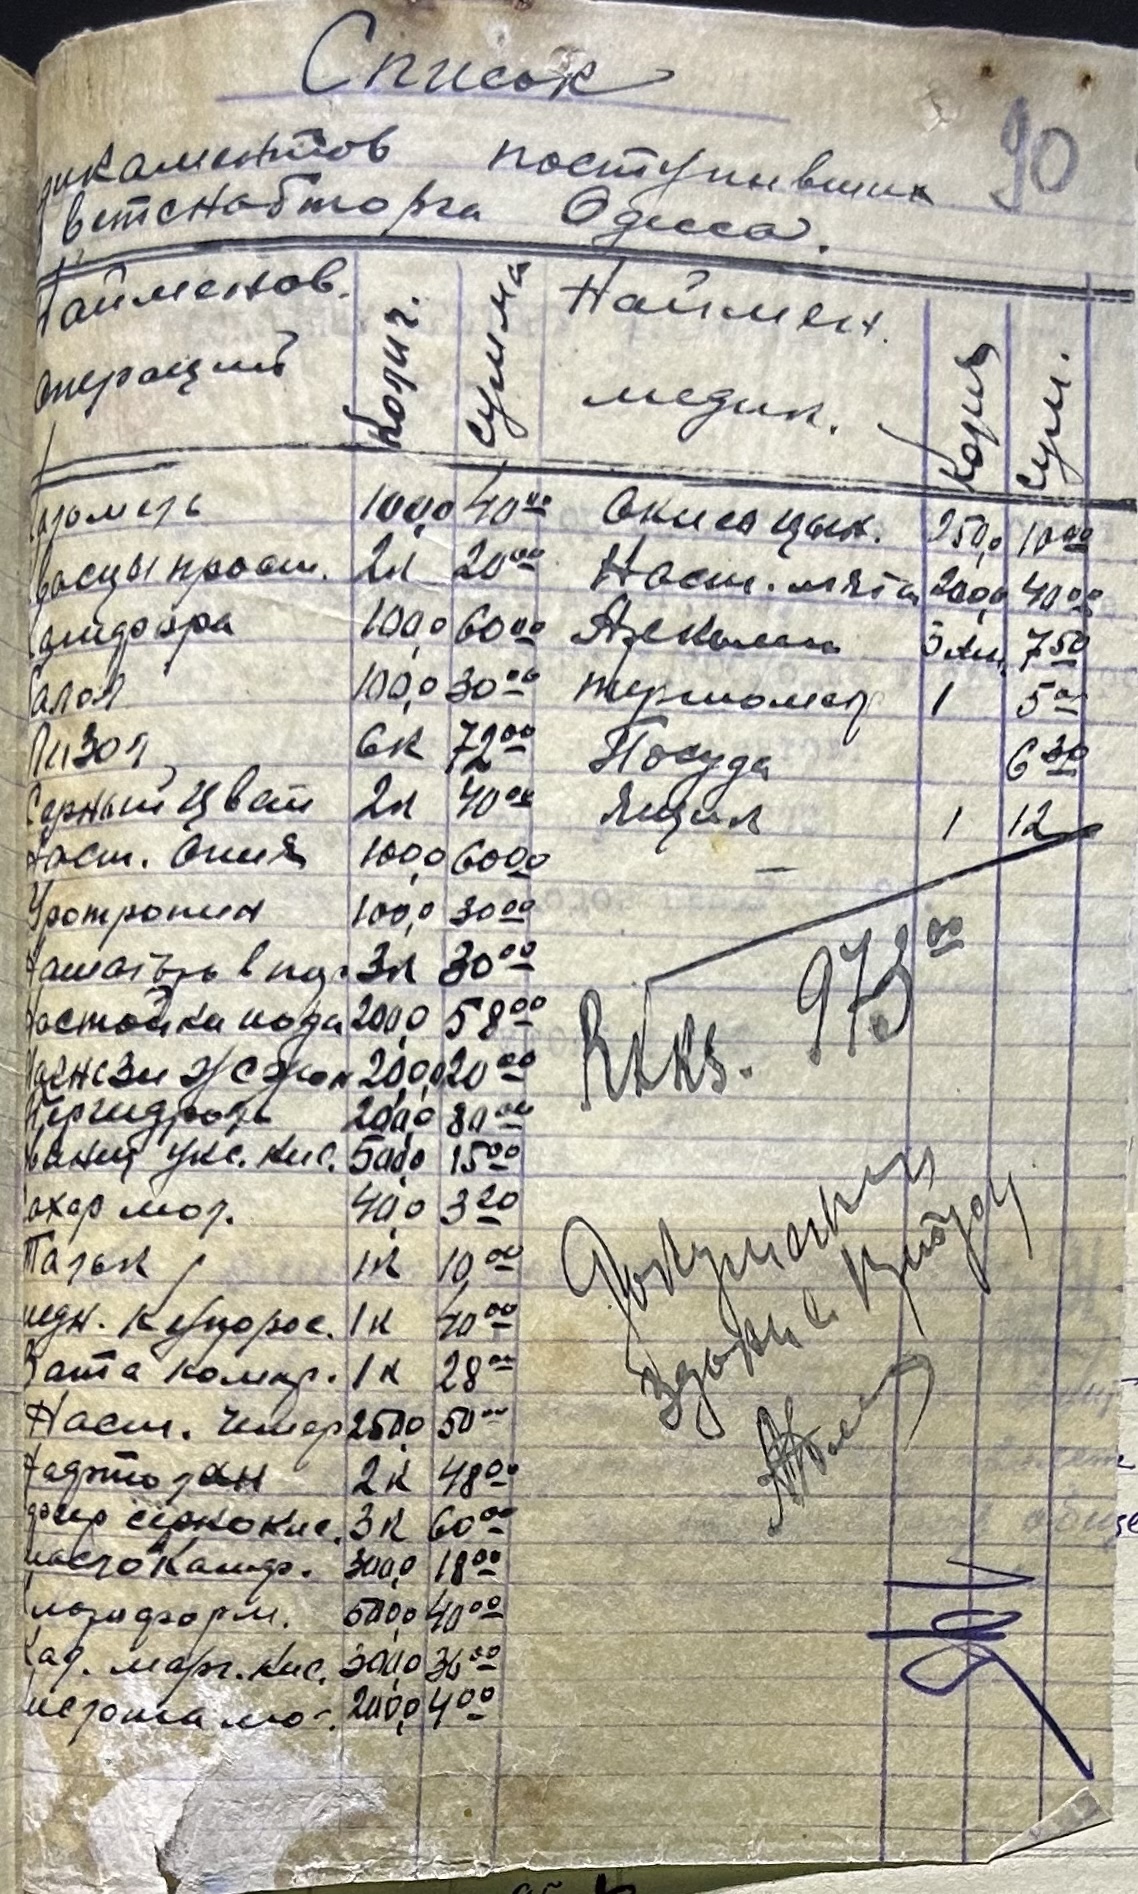 Список
90
дикаментов поступивших
ветснабторга Одесса.
Найменов. операций Колич. Сумма Наймен. медик. Колич Сум.
аломель 100,0 40 00 Окись цын. 250,0 10 00
васцы прост. 2к 20 00 Наст. мята 200,0 40 00
Камфора 100,0 60 00 Ареколин 5 ам. 7 50
Салол 100,0 30 00 термометр 1 5 00
Лизол 6к 72 00 Посуда 6 30
Серный цвет 2к 40 00 Ящик 1 12
Наст. Опия 100,0 60 00
Уротропин 100,0 30 00
3к 30 00
настойка иода 200,0 58 00
жжон 200,0 20 00
Пергидроль 200,0 80 00
укс. кис. 500,0 15 00
сахар мол. 40,0 3 20
Тальк 1к 10 00
медн. Купорос. 1к 40 00
Вата компр. 1к 28 00
Наст. Чемер 250,0 50 00
Нафтолан 2к 48 00
сернокис. 3к 60 00
масло Камф. 300,0 18 00
Хлороформ. 500,0 40 00
Кал. марг. кис. 300,0 36 00
кислота мол. 200,0 4 00
Rkks. 973 00
Документи